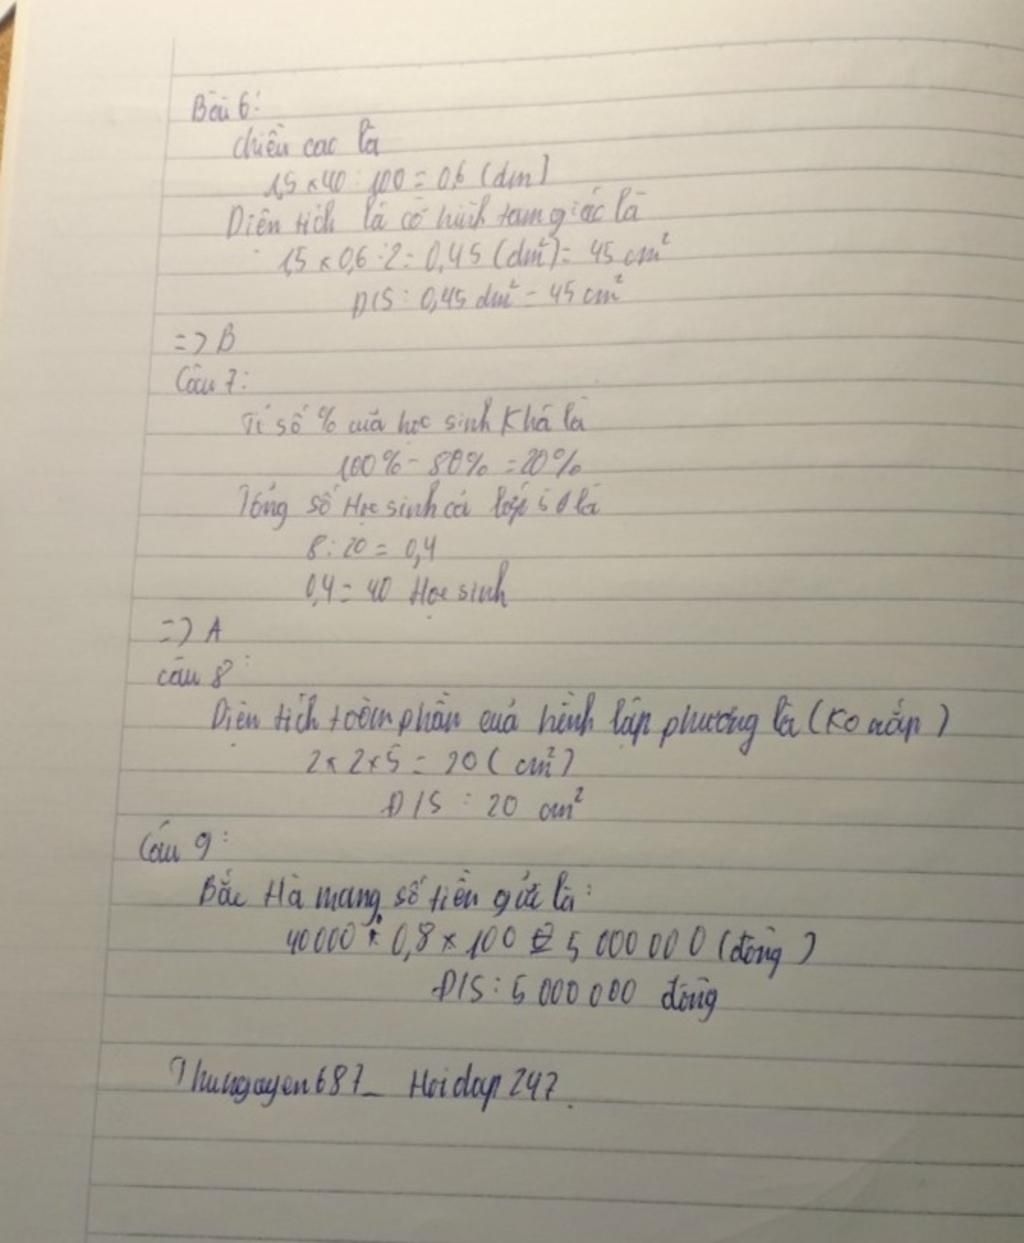 Bài 6:
chiều cao là
1,5 x 40 : 100 = 0,6 (dm)
Diện tích lá cờ hình tam giác là
1,5 x 0,6 : 2 = 0,45 (dm²) = 45 cm²
Đ/S : 0,45 dm² = 45 cm²
=> B
Câu 7:
Tỉ số % của học sinh Khá là
100% - 80% = 20%
Tổng số Học sinh cả lớp 5A là
8 : 20 = 0,4
0,4 = 40 Học sinh
=> A
câu 8:
Diện tích toàn phần của hình lập phương là (Ko nắp)
2 x 2 x 5 = 20 (cm²)
Đ/S : 20 cm²
Câu 9:
Bác Hà mang số tiền gửi là:
40000 : 0,8 x 100 = 5 000 000 (đồng)
Đ/S : 5 000 000 đồng
Thungayen687_ Hoidap247.